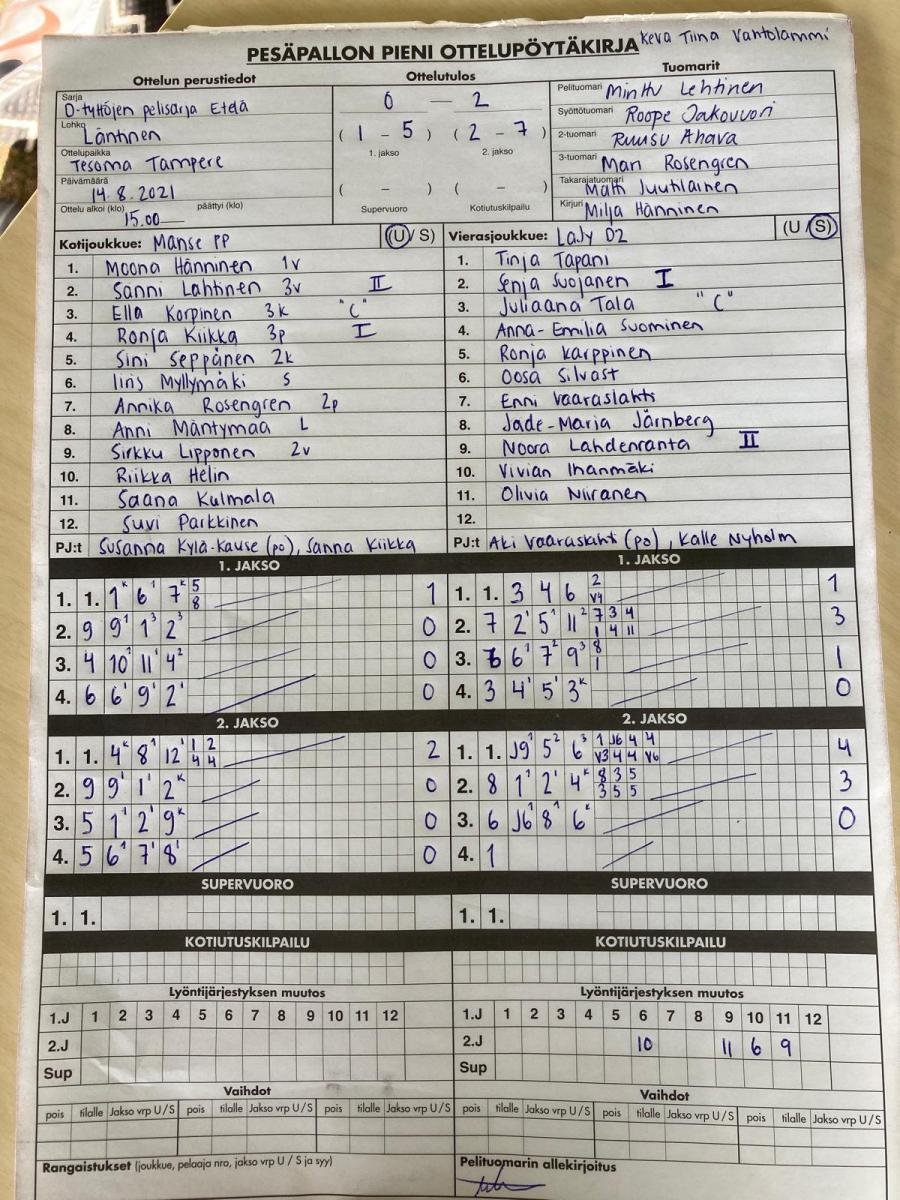 PESÄPALLON PIENI OTTELUPÖYTÄKIRJA Keva Tiina Vantolammi
Ottelun perustiedot Ottelutulos Tuomarit
Sarja D-tyttöjen pelisarja Etelä
Lohko Läntinen
Ottelupaikka Tesoma Tampere
Päivämäärä 14.8.2021
Ottelu alkoi (klo) 15.00 päättyi (klo)
0 – 2
(1 – 5) (2 – 7)
1. jakso 2. jakso
( – ) ( – )
Supervuoro Kotiutuskilpailu
Pelituomari Minttu Lehtinen
Syöttötuomari Roope Jakovuori
2-tuomari Ruusu Ahava
3-tuomari Mari Rosengren
Takarajatuomari Matti Juutilainen
Kirjuri Milja Hänninen
Kotijoukkue: Manse PP (U / S)
1. Moona Hänninen 1v
2. Sanni Lahtinen 3v II
3. Ella Korpinen 3k "C"
4. Ronja Kiikka 3p I
5. Sini Seppänen 2k
6. Iiris Myllymäki S
7. Annika Rosengren 2p
8. Anni Mäntymaa L
9. Sirkku Lipponen 2v
10. Riikka Helin
11. Saana Kulmala
12. Suvi Parkkinen
PJ:t Susanna Kylä-Kause (po), Sanna Kiikka
Vierasjoukkue: LaJy D2 (U / S)
1. Tinja Tapani
2. Senja Suojanen I
3. Juliaana Tala "C"
4. Anna-Emilia Suominen
5. Ronja Karppinen
6. Oosa Silvast
7. Enni Vaaraslahti
8. Jade-Maria Järnberg
9. Noora Lahdenranta II
10. Vivian Ihanmäki
11. Olivia Niiranen
12.
PJ:t Aki Vaaraslahti (po), Kalle Nyholm
1. JAKSO
1. 1. 1k 6 1 7k 5 8 1
2. 9 9 1 1 3 2 3 0
3. 4 10 1 11 1 4 2 0
4. 6 6 1 9 2 1 0
1. JAKSO
1. 1. 3 4 6 2 V4 1
2. 7 2 1 5 1 11 2 7 3 4 1 4 11 3
3. 6 6 1 7 2 9 3 8 1 1
4. 3 4 1 5 1 3k 0
2. JAKSO
1. 1. 4k 8 1 12 1 1 2 4 4 2
2. 9 9 1 1 1 2k 0
3. 5 1 1 2 1 9k 0
4. 5 6 1 7 1 8 1 0
2. JAKSO
1. 1. J9 1 5 2 6 3 1 J6 4 4 V3 4 4 V6 4
2. 8 1 1 2 1 4k 8 3 5 3 5 5 3
3. 6 J6 1 8 1 6k 0
4. 1
SUPERVUORO SUPERVUORO
1. 1. 1. 1.
KOTIUTUSKILPAILU KOTIUTUSKILPAILU
Lyöntijärjestyksen muutos Lyöntijärjestyksen muutos
1.J 1 2 3 4 5 6 7 8 9 10 11 12 1.J 1 2 3 4 5 6 7 8 9 10 11 12
2.J 2.J 10 11 6 9
Sup Sup
Vaihdot Vaihdot
pois tilalle Jakso vrp U / S pois tilalle Jakso vrp U / S pois tilalle Jakso vrp U / S pois tilalle Jakso vrp U / S pois tilalle Jakso vrp U / S pois tilalle Jakso vrp U / S
Rangaistukset (joukkue, pelaaja nro, jakso vrp U / S ja syy) Pelituomarin allekirjoitus